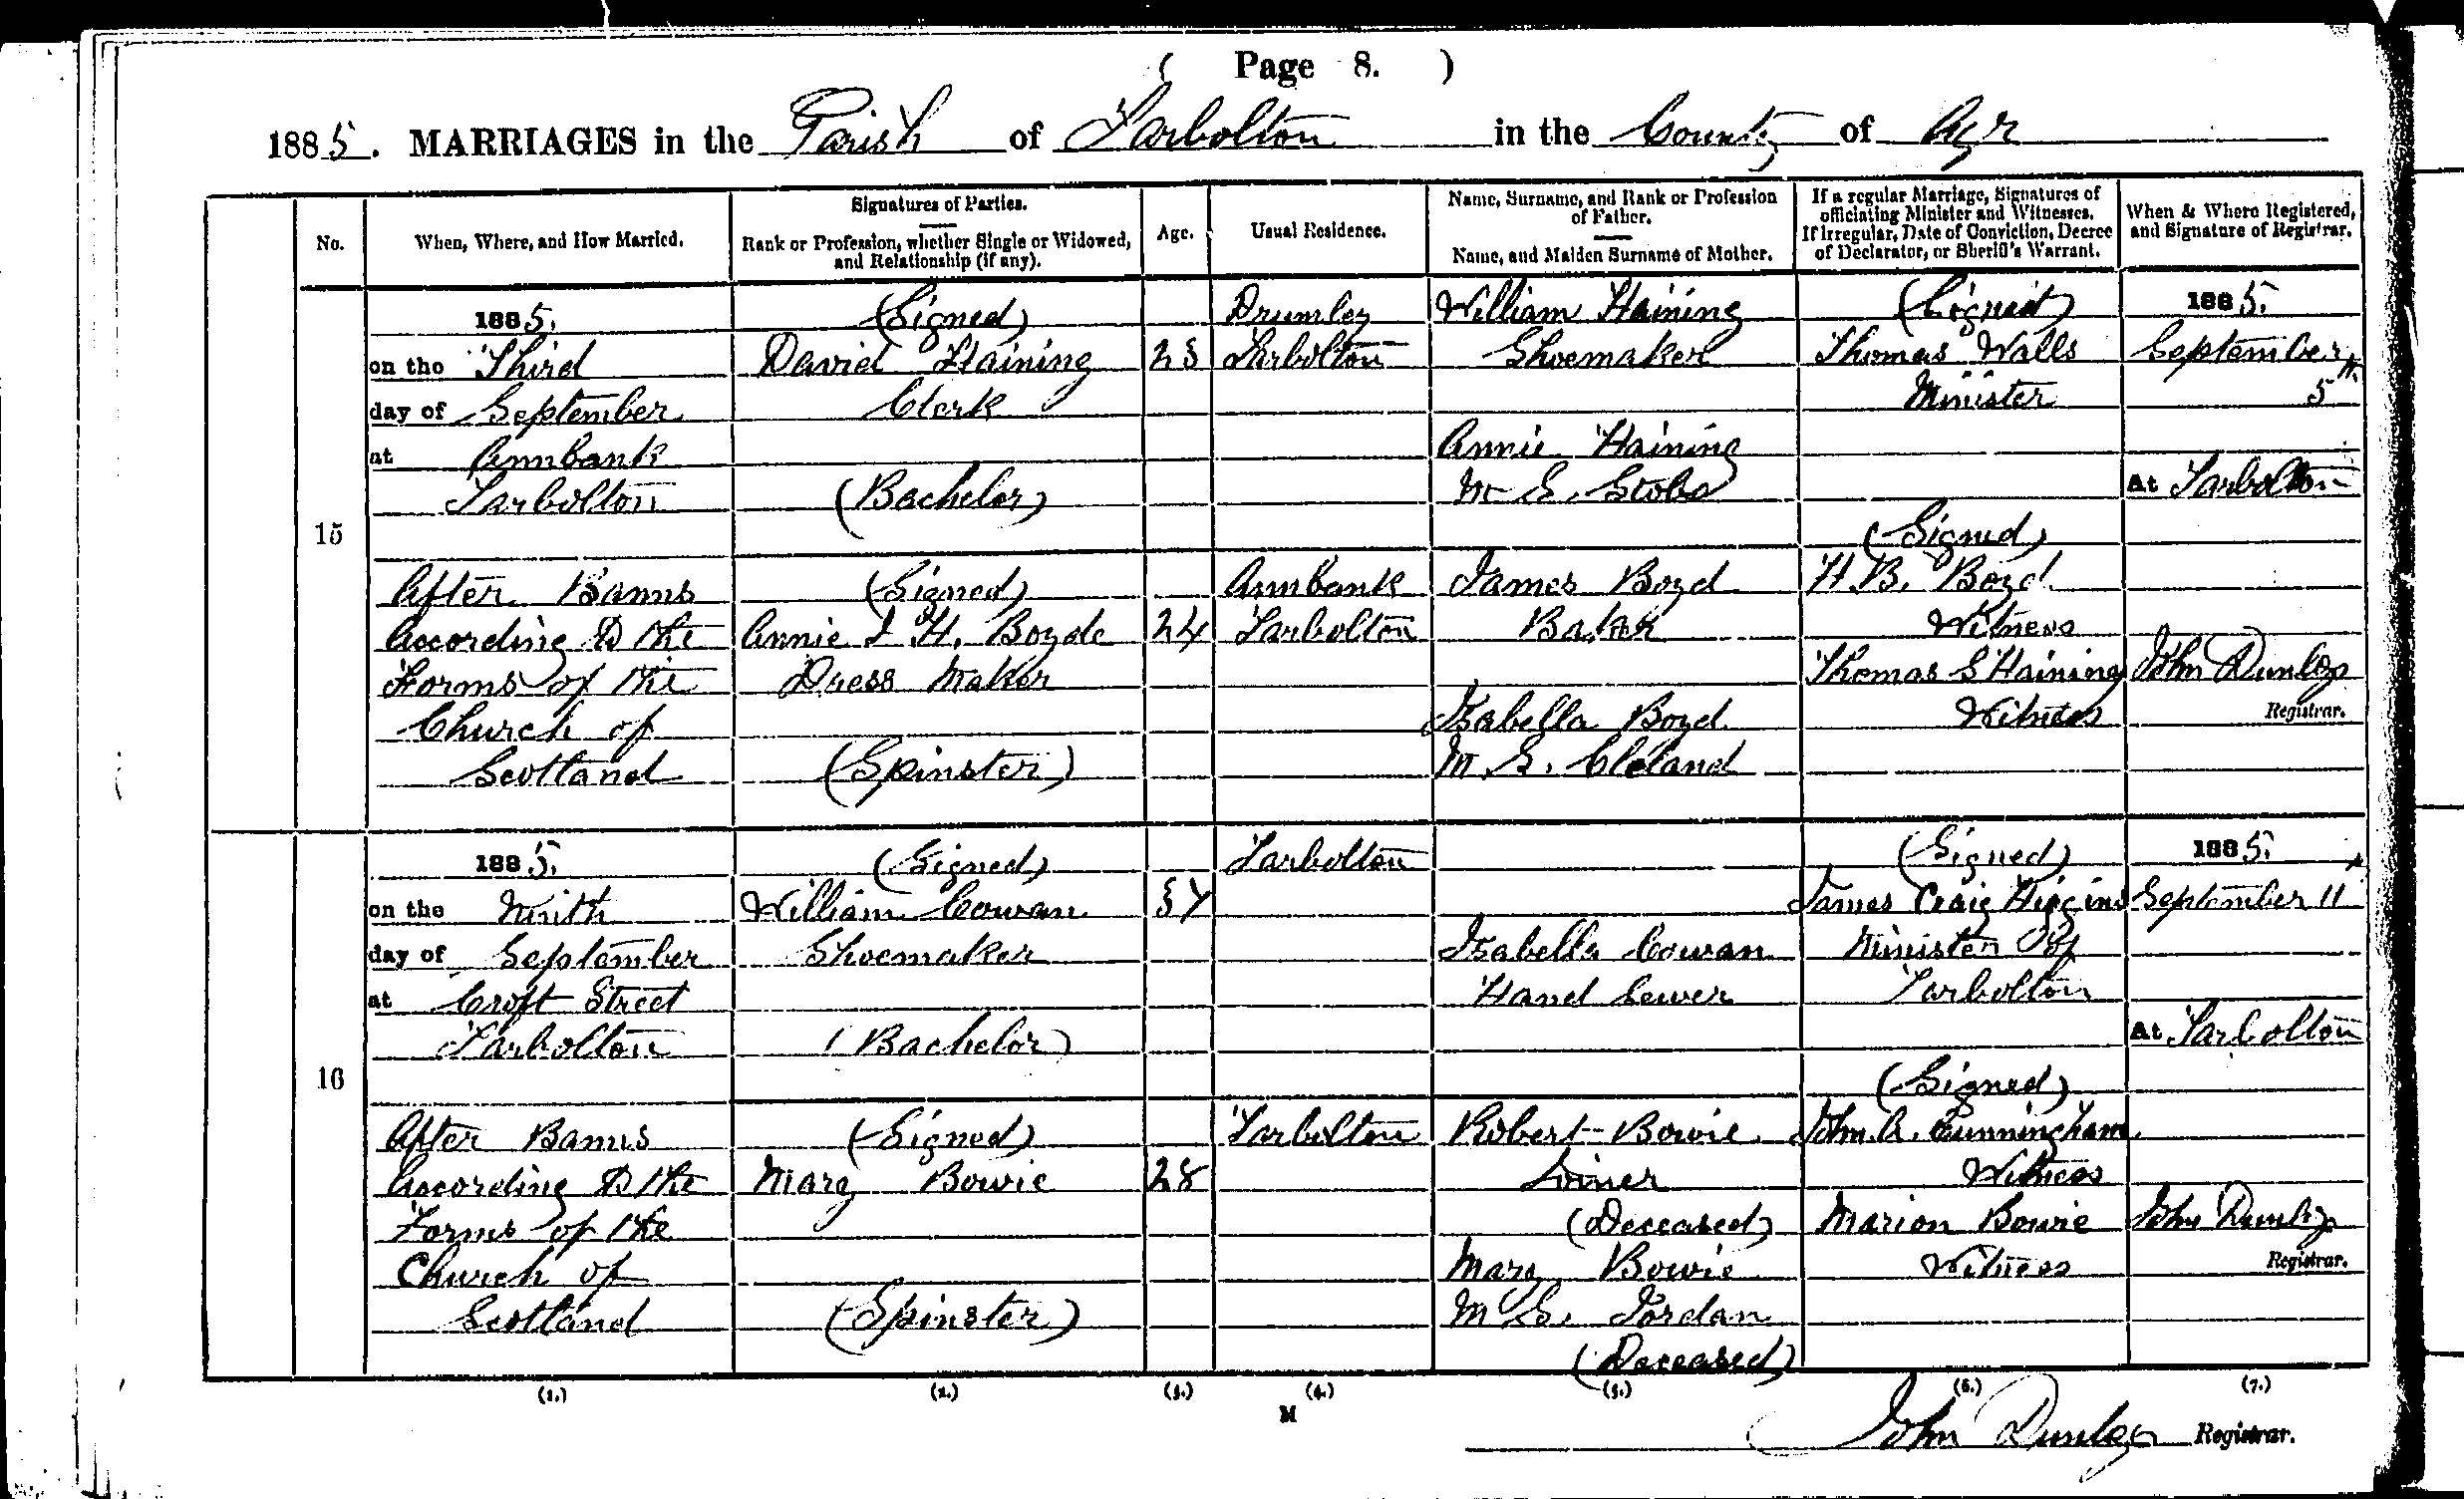 ( Page 8. )
1885. MARRIAGES in the Parish of Tarbolton in the County of Ayr
No.
When, Where, and How Married.
Signatures of Parties.
Rank or Profession, whether Single or Widowed,
and Relationship (if any).
Age.
Usual Residence.
Name, Surname, and Rank or Profession
of Father.
Name, and Maiden Surname of Mother.
If a regular Marriage, Signatures of
officiating Minister and Witnesses.
If Irregular, Date of Conviction, Decree
of Declarator, or Sheriff's Warrant.
When & Where Registered,
and Signature of Registrar.
15
1885.
on the Third
day of September
at Annbank
Tarbolton
After Banns
According to the
Forms of the
Church of
Scotland
(Signed)
David Haining
Clerk
(Bachelor)
(Signed)
Annie I H. Boyde
Dress Maker
(Spinster)
24
Drumley
Tarbolton
Annbank
Tarbolton
William Haining
Shoemaker
Annie Haining
M. S. Stobs
James Boyd
Baker
Isabella Boyd
M. S. Cleland
(Signed)
Thomas Walls
Minister
(Signed)
H. B. Boyd
Witness
Thomas S Haining
Witness
1885.
September
5th
At Tarbolton
John Dunlop
Registrar.
16
1885.
on the Ninth
day of September
at Croft Street
Tarbolton
After Banns
According to the
Forms of the
Church of
Scotland
(Signed)
William Cowan
Shoemaker
(Bachelor)
(Signed)
Mary Bowie
(Spinster)
28
Tarbolton
Tarbolton
Isabella Cowan
Hand Sewer
Robert Bowie
Joiner
(Deceased)
Mary Bowie
M. S. Jordan
(Deceased)
(Signed)
James Craig Higgins
Minister of
Tarbolton
(Signed)
John A. Cunningham
Witness
Marion Bowie
Witness
1885.
September 11
At Tarbolton
John Dunlop
Registrar.
(1.) (2.) (3.) (4.) (5.) (6.) (7.)
M
John Dunlop Registrar.